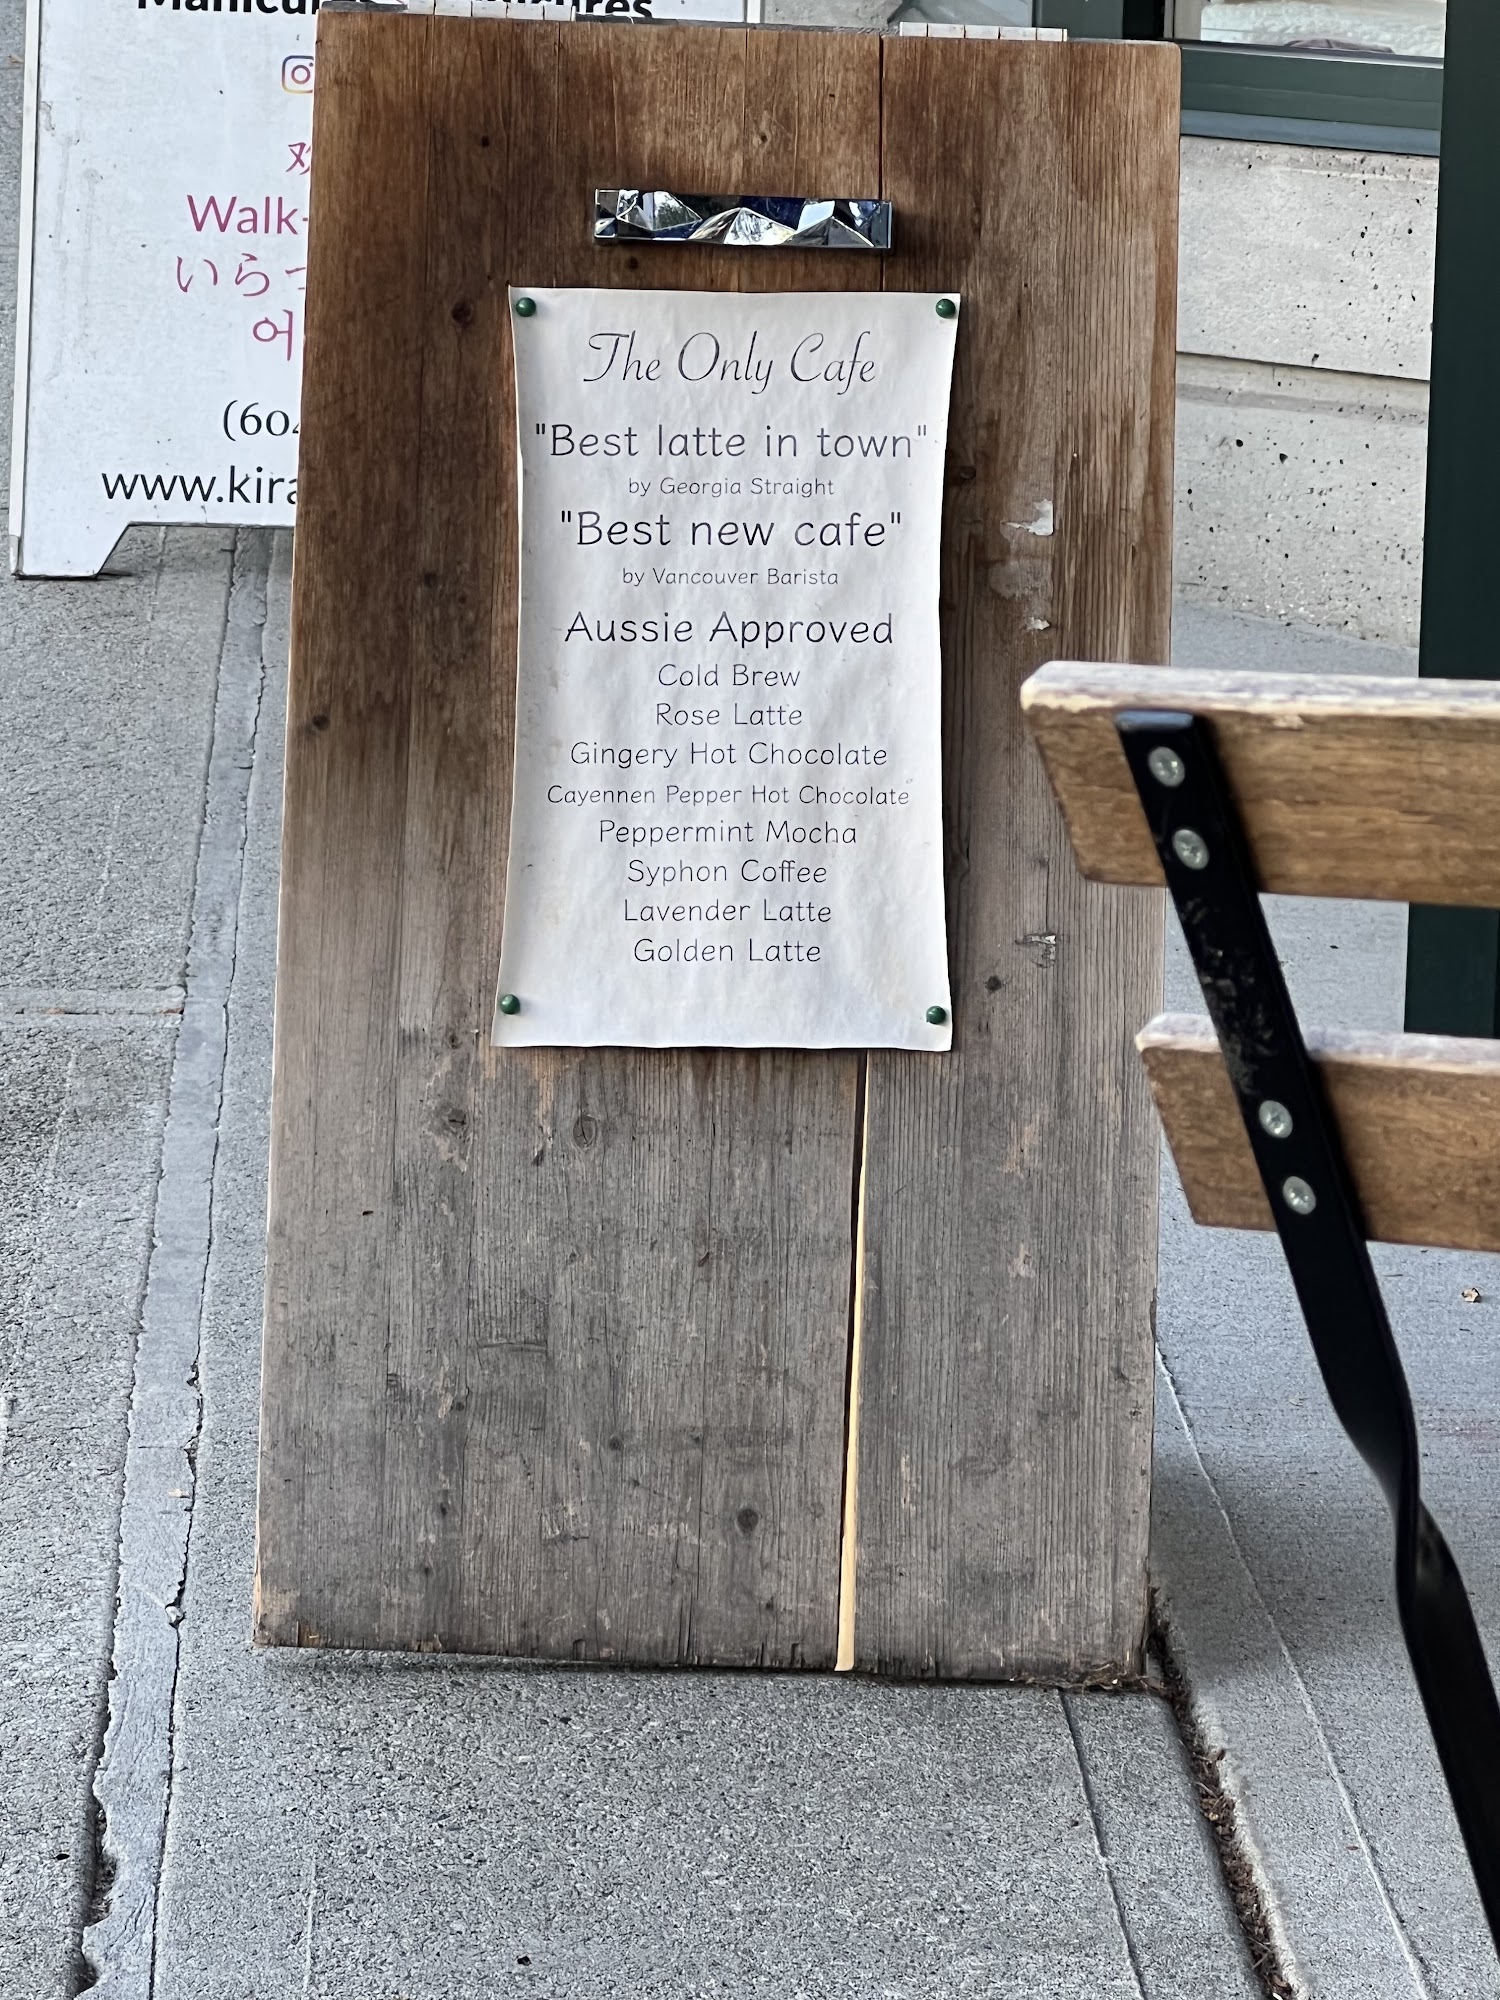 Manicures
欢
Walk-
いらっ
어
(604
www.kira
The Only Cafe
"Best latte in town"
by Georgia Straight
"Best new cafe"
by Vancouver Barista
Aussie Approved
Cold Brew
Rose Latte
Gingery Hot Chocolate
Cayennen Pepper Hot Chocolate
Peppermint Mocha
Syphon Coffee
Lavender Latte
Golden Latte